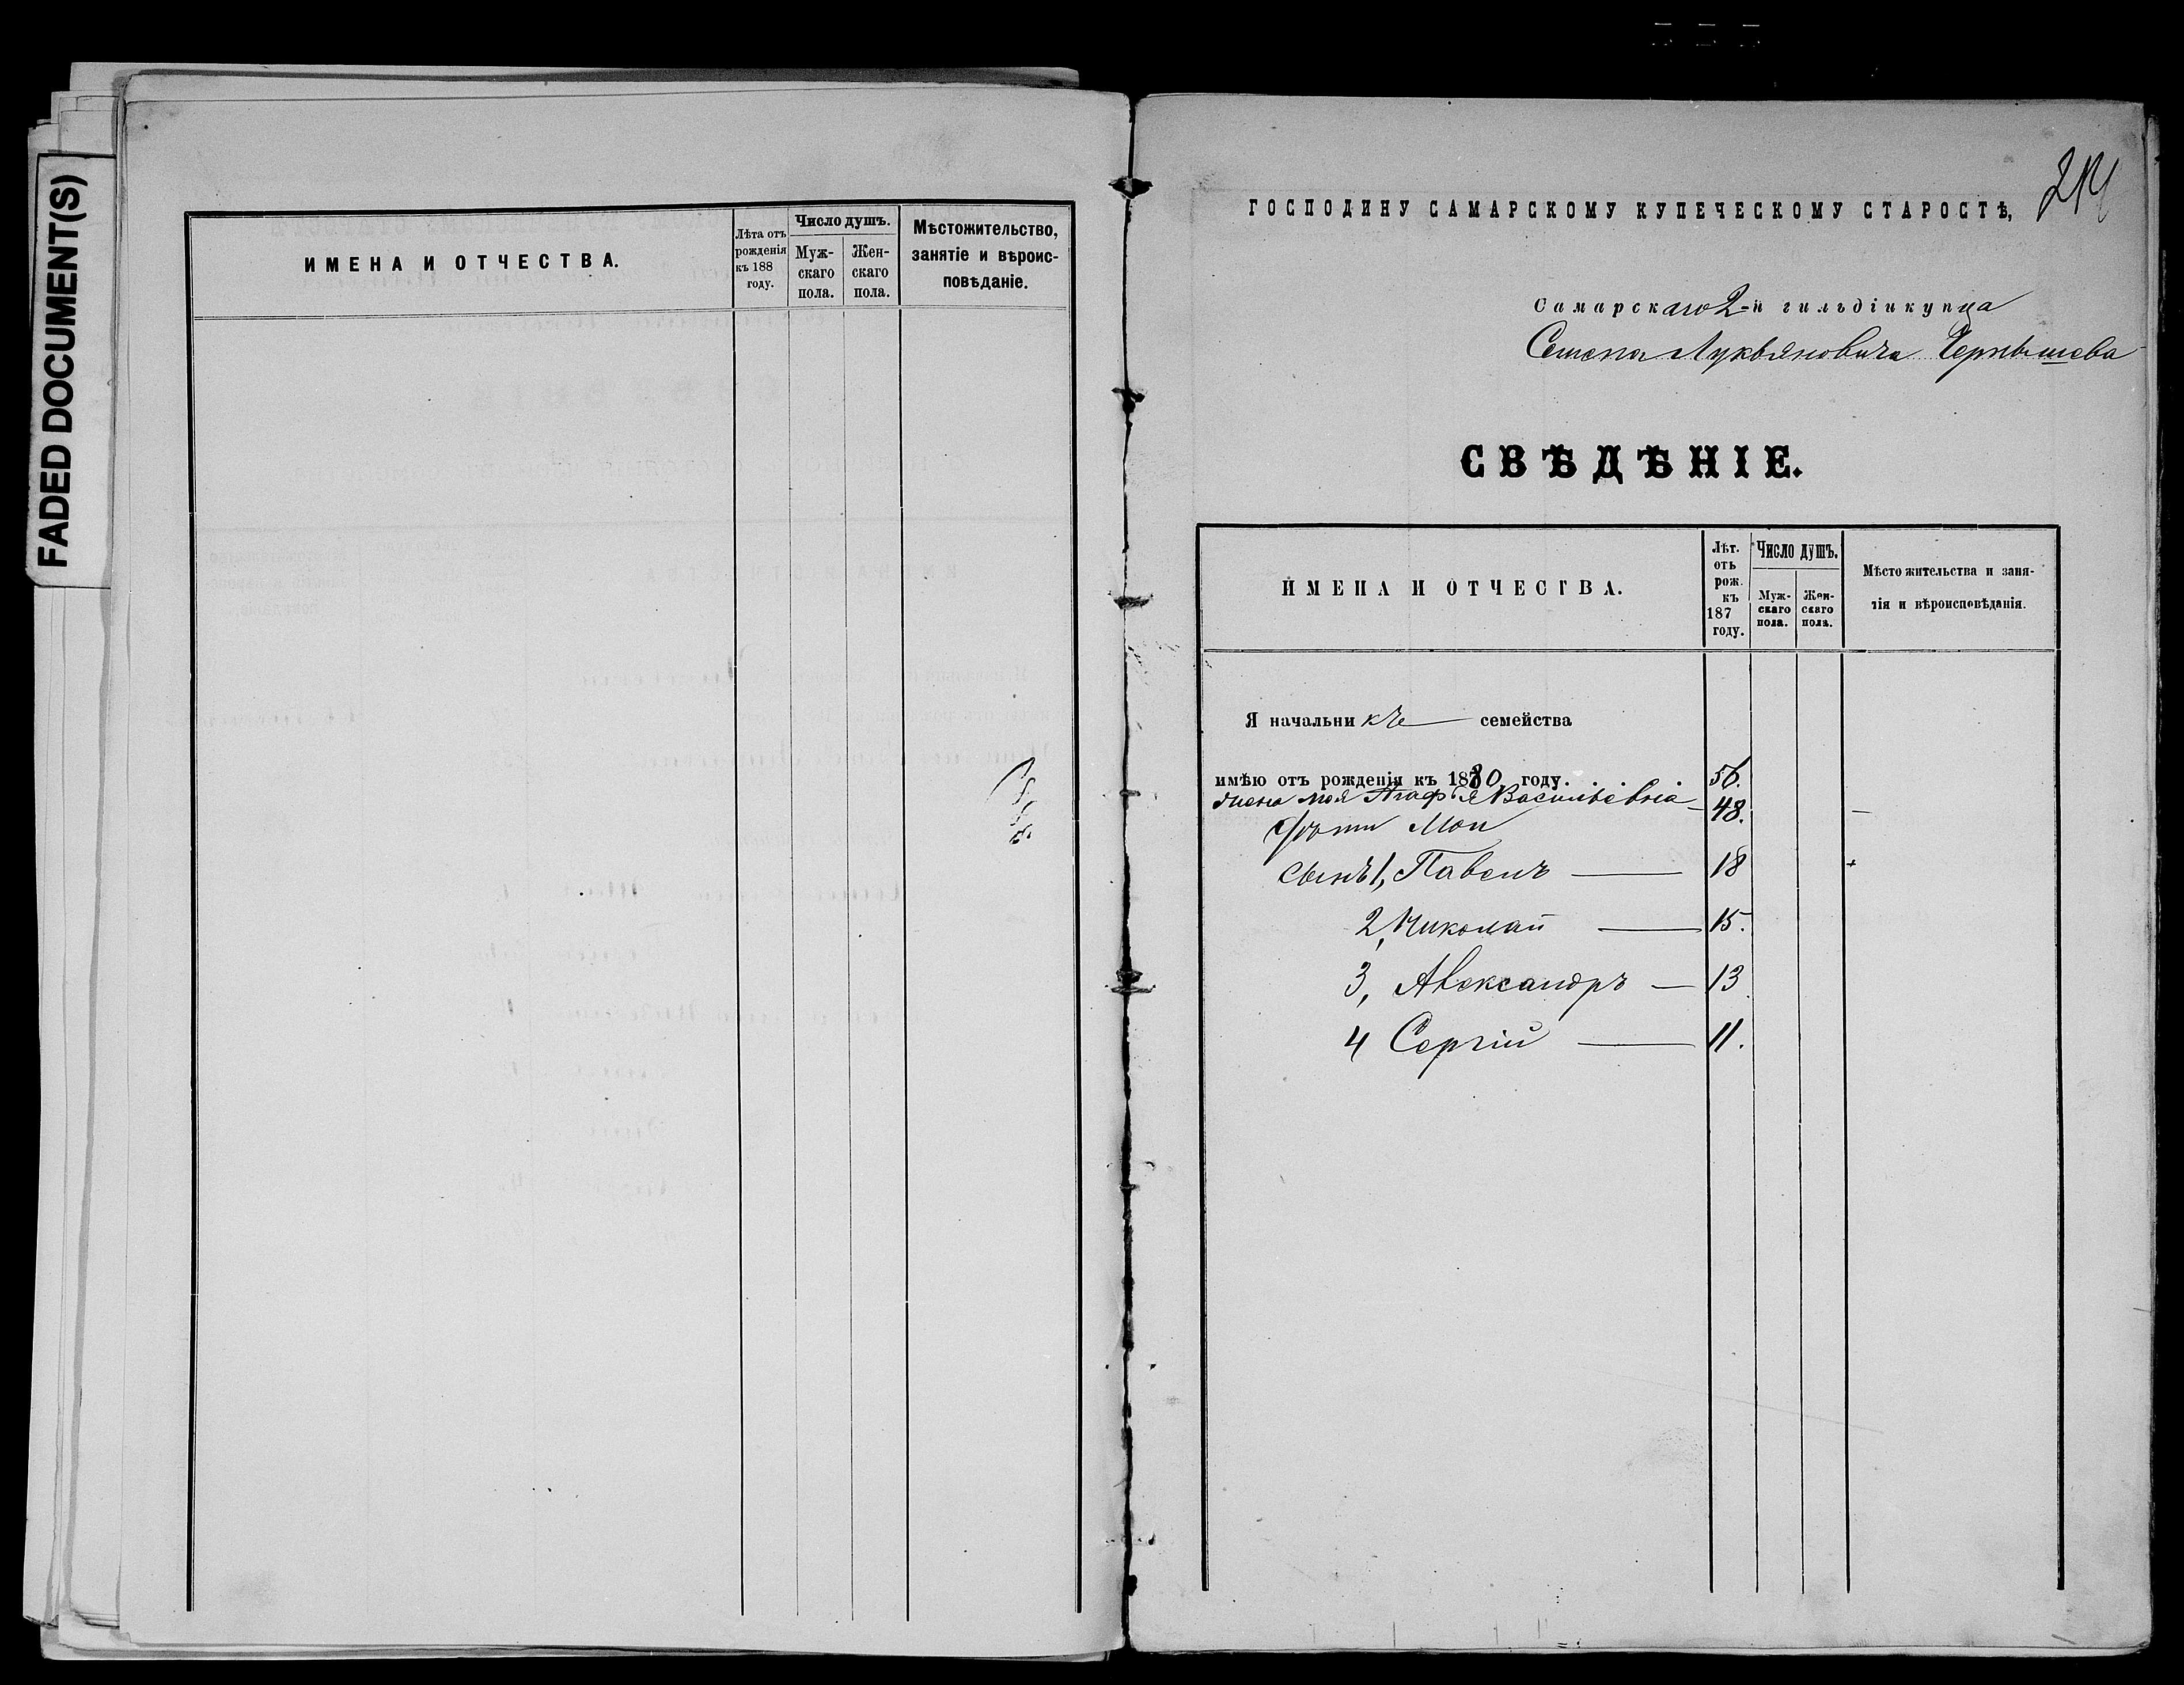 FADED DOCUMENT(S)
ИМЕНА И ОТЧЕСТВА.
Лѣта отъ рожденія къ 188 году.
Число душъ.
Муж-скаго пола.
Жен-скаго пола.
Мѣстожительство,
занятіе и вѣроис-
повѣданіе.
214
ГОСПОДИНУ САМАРСКОМУ КУПЕЧЕСКОМУ СТАРОСТѢ,
Самарскаго 2-й гильдіи купца
Семена Лукьяновича Чернышева
СВѢДѢНІЕ.
ИМЕНА И ОТЧЕСТВА.
Лѣт. отъ рож. къ 187 году.
Число душъ.
Муж-скаго пола.
Жен-скаго пола.
Мѣсто жительства и заня-
тія и вѣроисповѣданія.
Я начальникъ семейства
имѣю отъ рожденія къ 1880 году. 56.
жена моя Агафья Васильевна 48.
Дѣти Мои
сынъ 1, Павелъ — 18
2, Николай — 15.
3, Александръ — 13
4 Сергій — 11.